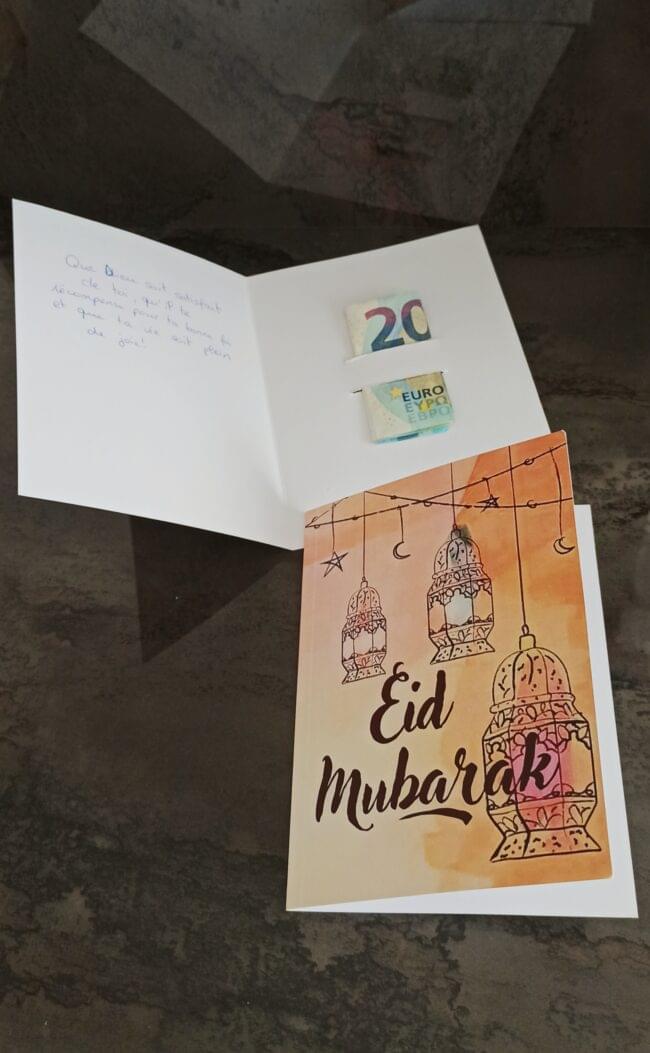 Que Dieu soit satisfait
de toi, qu'il te
récompense pour ta bonne foi
et que ta vie soit plein
de joie!
20
EURO
ΕΥΡΩ
ЕВРО
Eid
Mubarak